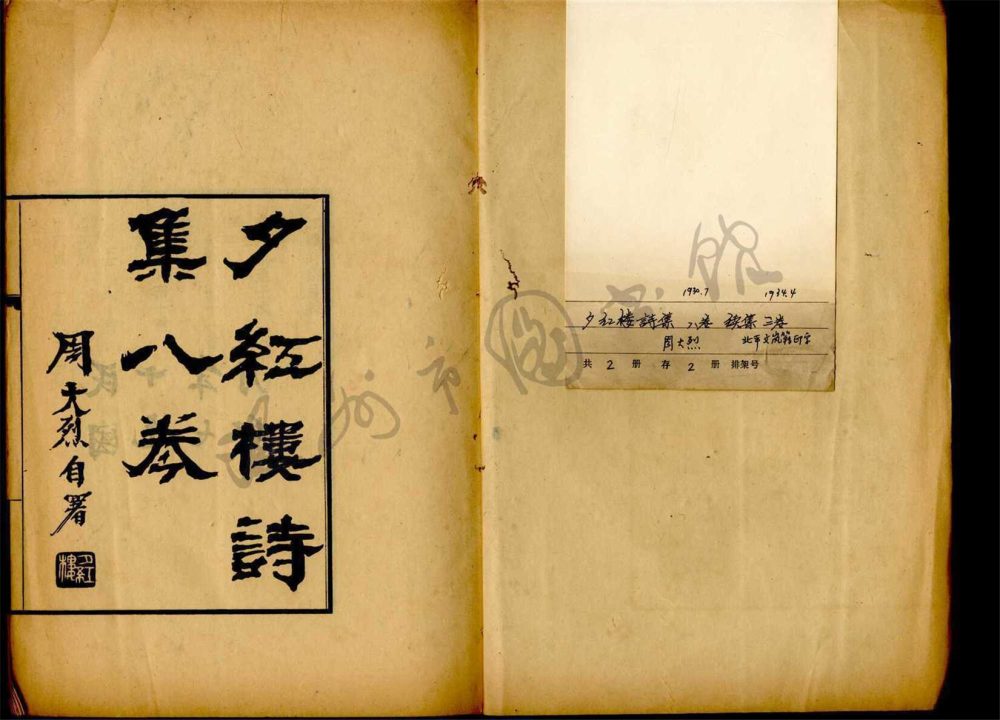 夕紅樓詩
集八卷
周大烈自署
夕紅樓
1930.7 1934.4
夕红楼詩集 八卷 续集 三卷
周大烈 北平文岚簃印字
共 2 册 存 2 册 排架号
州市圖書館